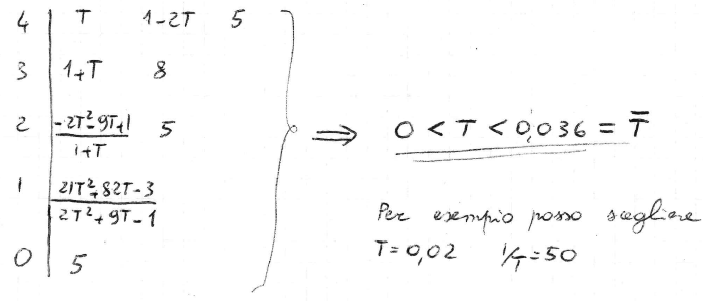 4 T 1-2T 5
3 1+T 8
2 -2T²-9T+1 / 1+T 5
1 21T²+82T-3 / 2T²+9T-1
0 5
⇒ 0 < T < 0,036 = T̿
Per esempio posso scegliere
T=0,02 1/T=50